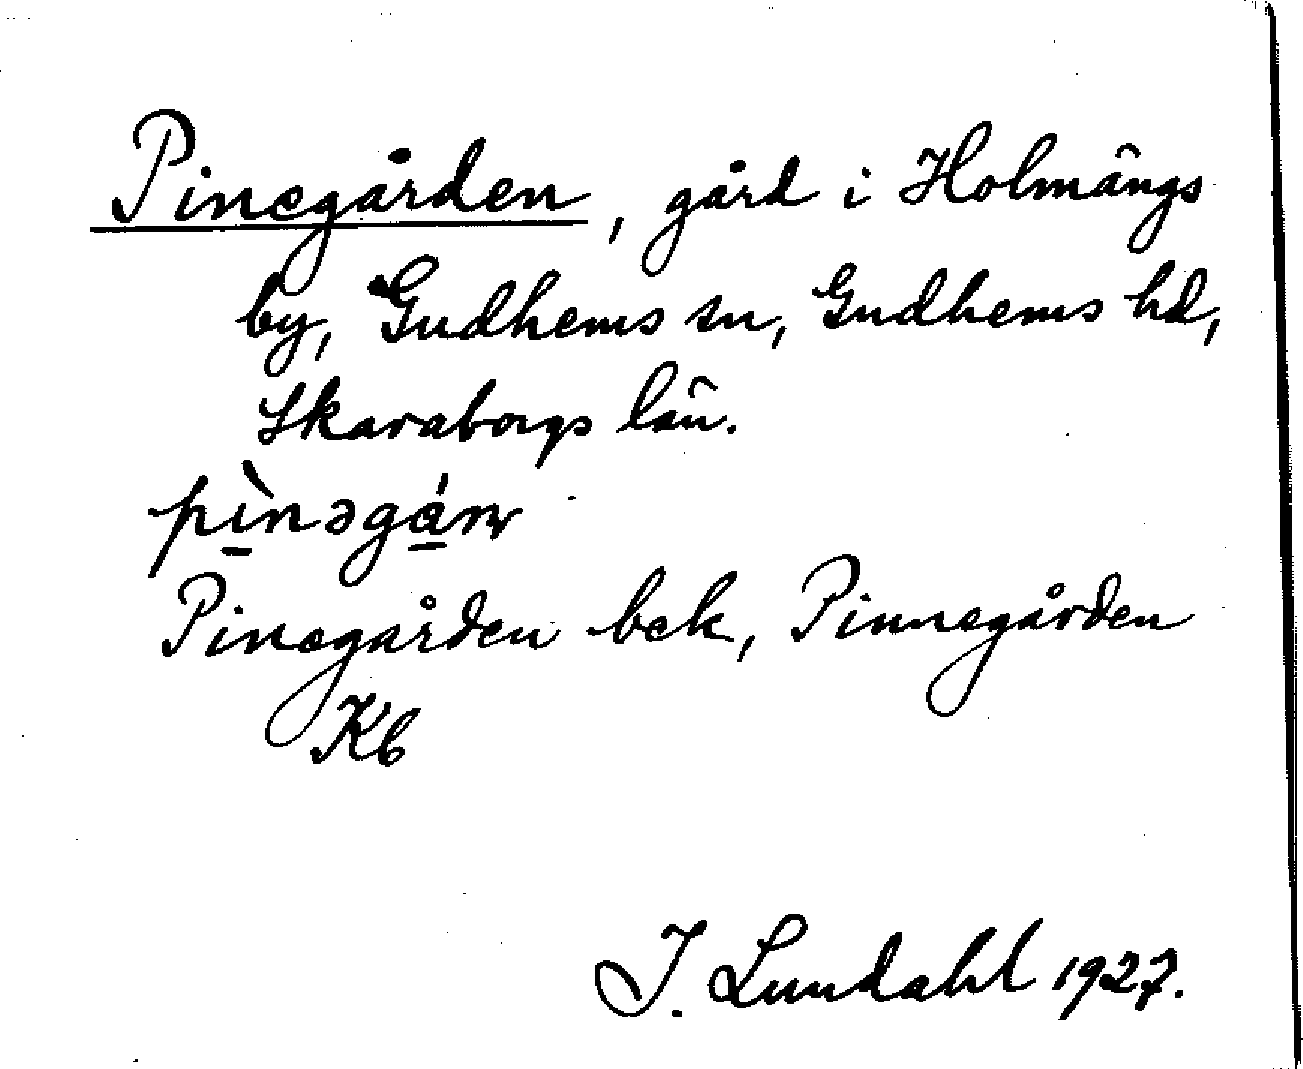 Pinegården, gård i Holmängs
by, Gudhems sn, Gudhems hd,
Skaraborgs län.
pìnəgán
Pinegården bek, Pinnegården
Kb
J. Lundahl 1927.